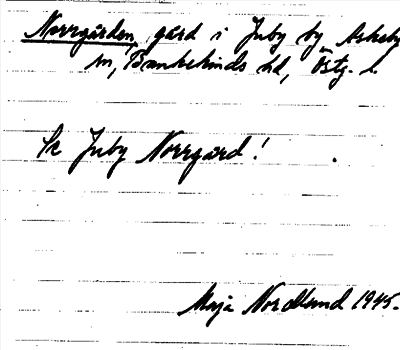 Norrgården, gård i Juby by Askeby
sn, Bankekinds hd, Östg. l.
Se Juby Norrgård!
Maja Nordlund 1945.